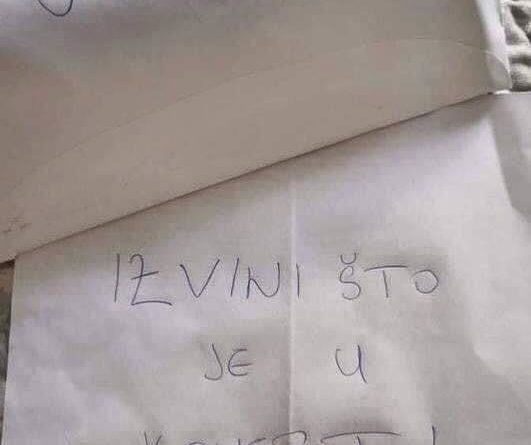 IZVINI ŠTO
JE U